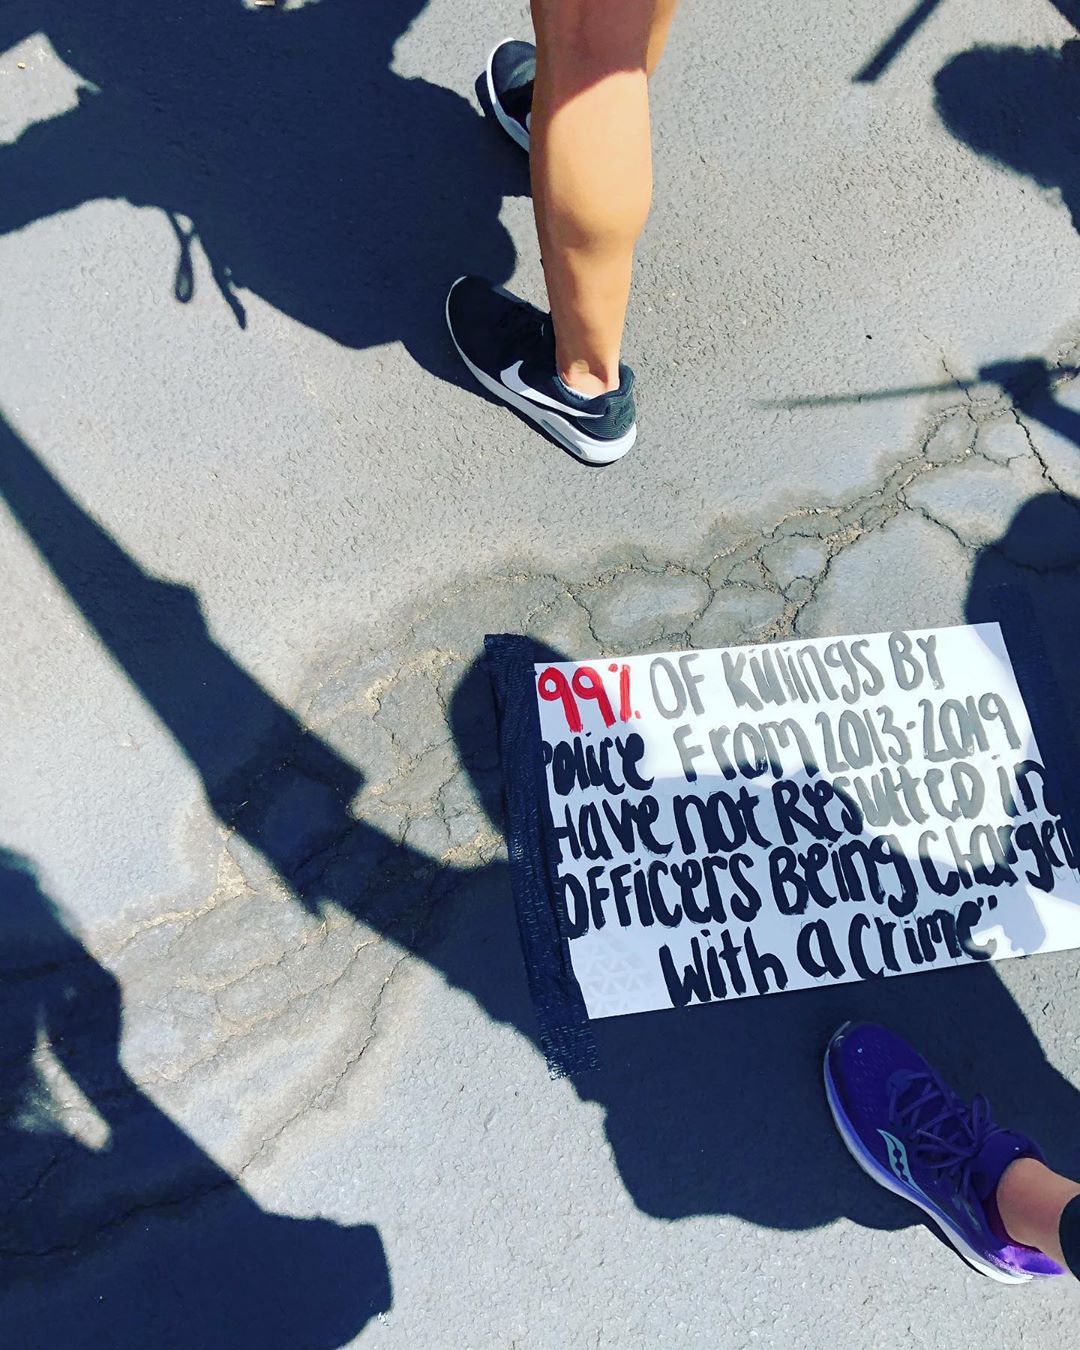 "99% OF Killings By
Police From 2013-2019
Have not Resulted in
OFFicers Being Charged
With a Crime"